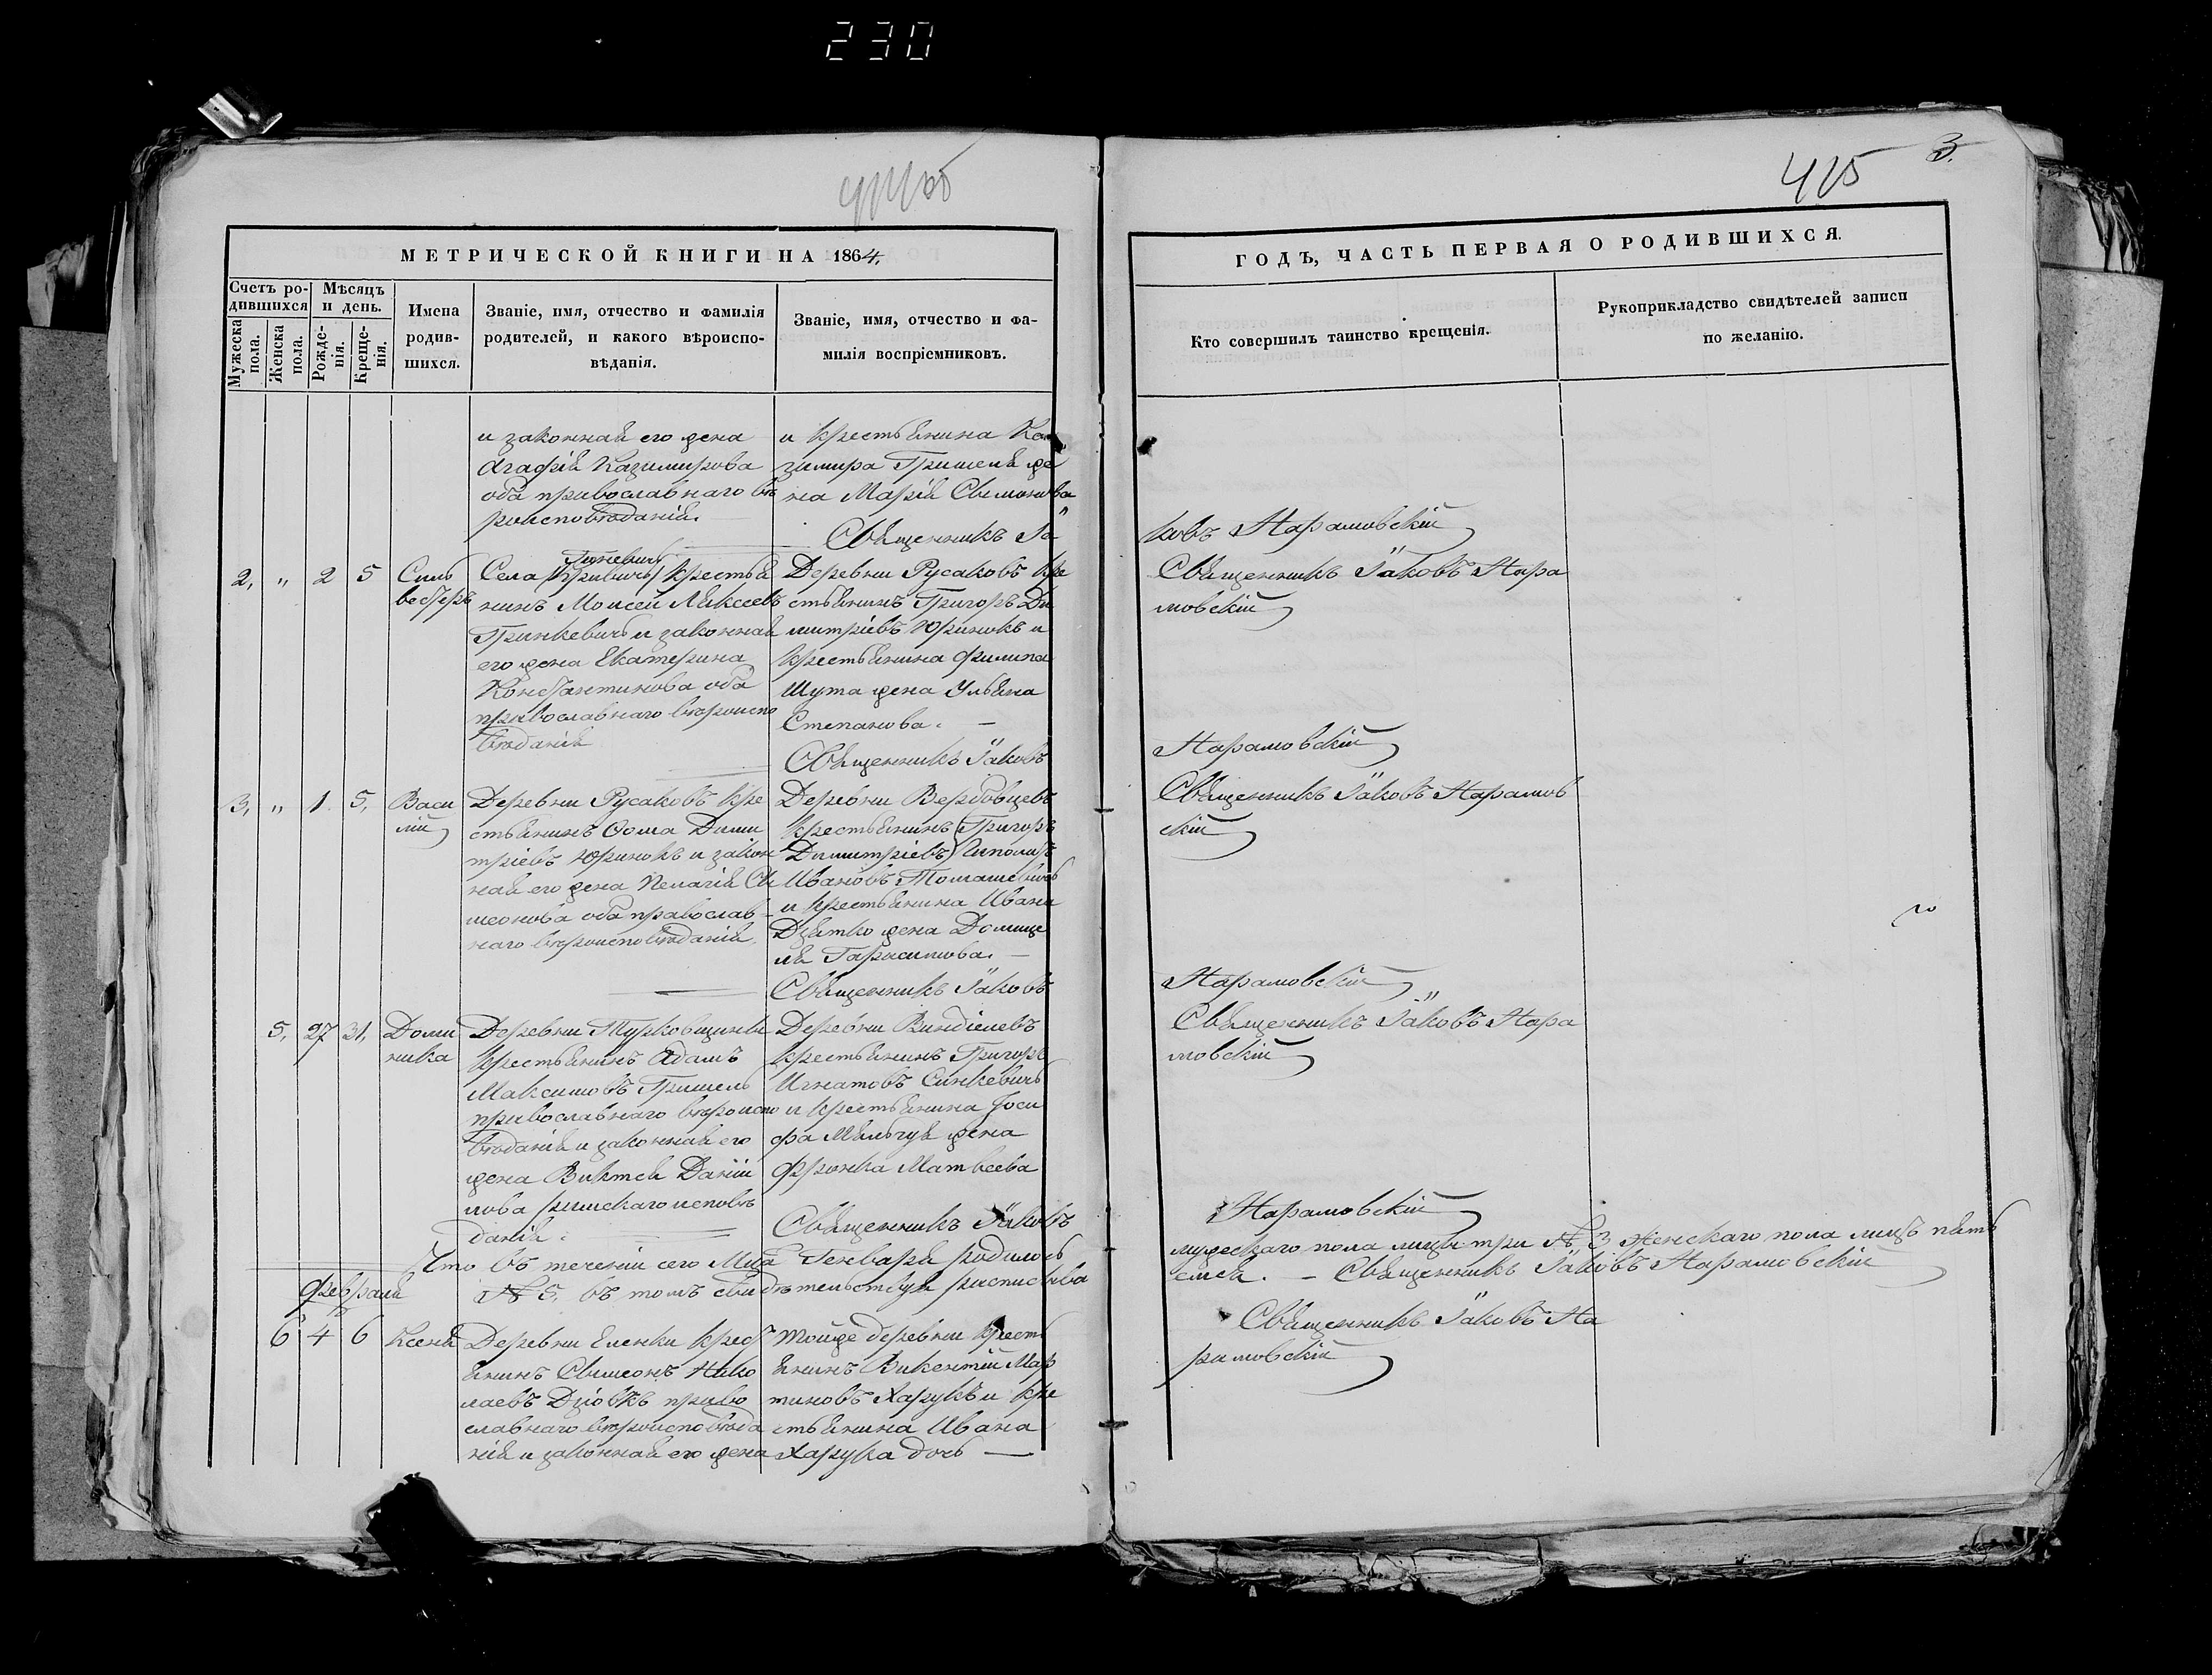 230
415
3.
МЕТРИЧЕСКОЙ КНИГИ НА 1864.
ГОДЪ, ЧАСТЬ ПЕРВАЯ О РОДИВШИХСЯ.
Счетъ ро-
дившихся
Мужеска
пола.
Женска
пола.
Мѣсяцъ
и день.
Рожде-
нія.
Креще-
нія.
Имена
родив-
шихся.
Званіе, имя, отчество и фамилія
родителей, и какого вѣроиспо-
вѣданія.
Званіе, имя, отчество и фа-
милія воспріемниковъ.
Кто совершилъ таинство крещенія.
Рукоприкладство свидѣтелей записи
по желанію.
и законная его жена
Агафія Казимирова
оба православнаго вѣ
роисповѣданія.
и крестьянина Ка
зимира Гришеля же
на Марія Свимонова
Священникъ Іа
ковъ Нарамовскій
2, " 2 5
Силь
вестеръ
Села крестья
нинъ Моисей Алексеевъ
Гринкевичъ и законная
его жена Екатерина
Константинова оба
православнаго вѣроиспо
вѣданія
Деревни Русаковъ кре
стьянинъ Григоръ Ди
митріевъ Юрчикъ и
крестьянина Филипа
Шута жена Ульяна
Степанова. —
Священникъ Іаковъ
Священникъ Іаковъ Нара
мовскій
Нарамовскій
3, " 1. 5,
Васи
лій
Деревни Русаковъ кре
стьянинъ Ѳома Дими
тріевъ Юрчикъ и закон
ная его жена Пелагія Си
меонова оба православ
наго вѣроисповѣданія.
Деревни Вербовцевъ
крестьянинъ (Григоръ
Димитріевъ) Иполитъ
Ивановъ Томашевичъ
и крестьянина Ивана
Дзятко жена Домице
ля Гарасимова. —
Священникъ Іаковъ
Священникъ Іаковъ Нарамов
скій
Нарамовскій
5, 27 31,
Доми
ника
Деревни Турковщизны
крестьянинъ Адамъ
Максимовъ Гришель
православнаго вѣроиспо
вѣданія и законная его
жена Виктея Даніи
лова римскаго исповѣ
данія.
Деревни
крестьянинъ Григоръ
Игнатовъ Синкевичъ
и крестьянина Іоси
фа жена
Фрузка Матвеева
Священникъ Іаковъ
Священникъ Іаковъ Нара
мовскій
Нарамовскій
Что въ теченіи сего М-ца Генваря родилось
мужескаго пола лицъ три № 3 женскаго пола лицъ пять
№ 5, въ томъ свидѣтельствуя расписыва
емся. — Священникъ Іаковъ Нарамовскій
Февраля
6 4 6
Ксенія
Деревни Еленки крест
янинъ Свимонъ Нико
лаевъ право
славнаго вѣроисповѣда
нія и законная его жена
Тойже деревни крест
янинъ Викентій Мар
тиновъ Харукъ и кре
стьянина Ивана
Харука дочь —
Священникъ Іаковъ На
рамовскій